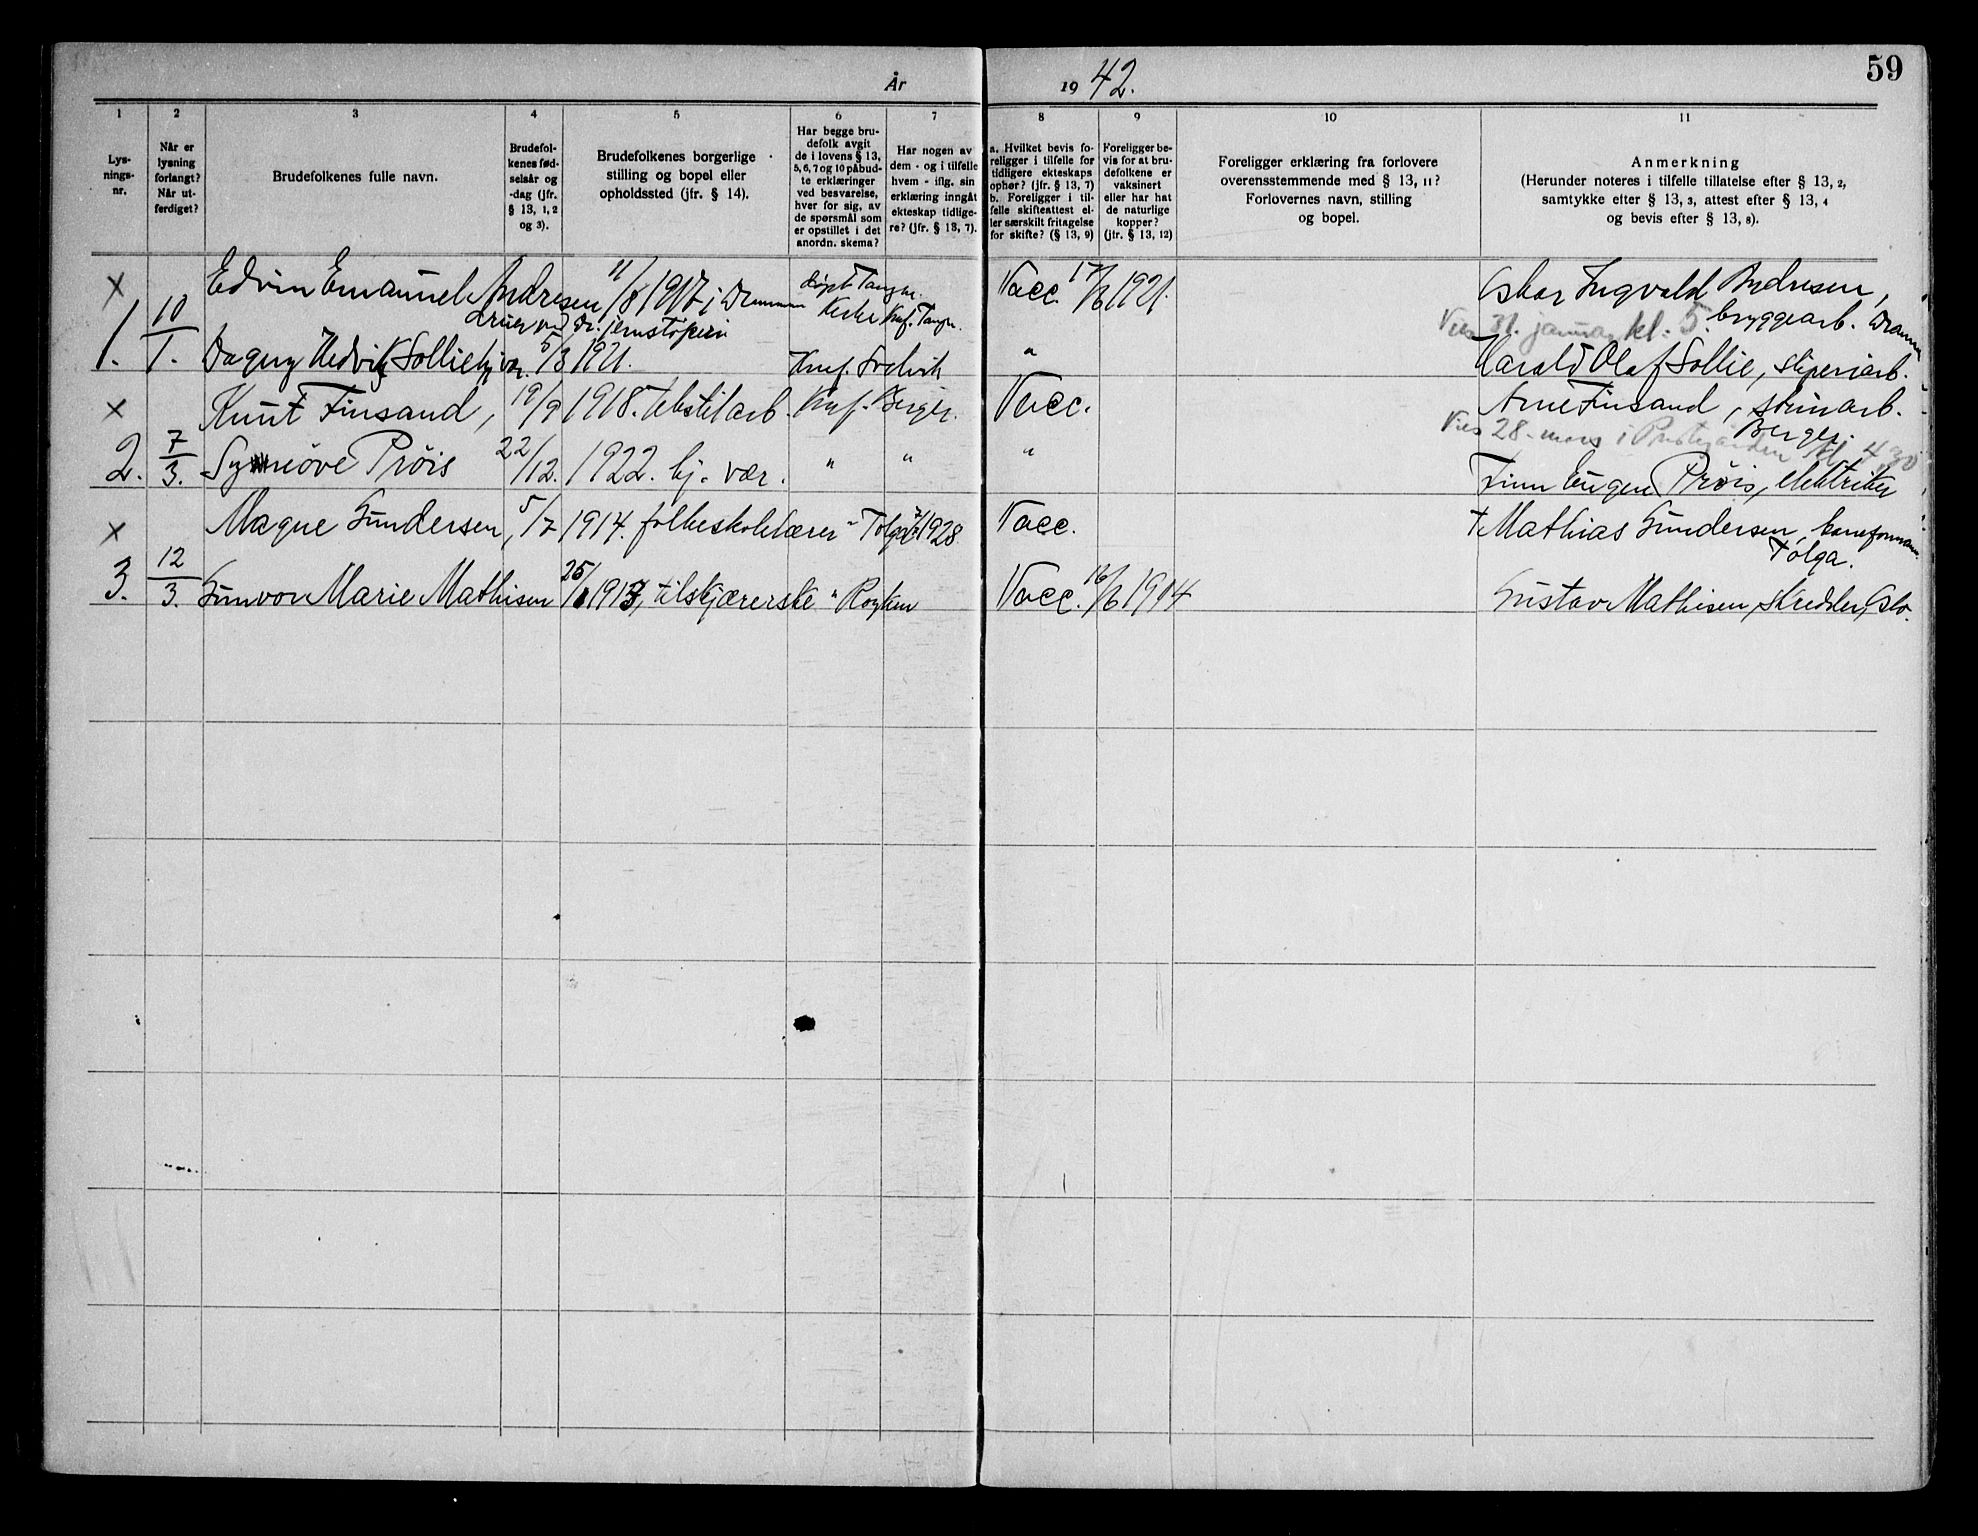 59
År 1942.
1
2
3
4
5
6
7
8
9
10
11
Lys-
nings-
nr.
Når er
lysning
forlangt?
Når ut-
ferdiget?
Brudefolkenes fulle navn.
Brudefol-
kenes fød-
selsår og
-dag (jfr.
§ 13, 1, 2
og 3).
Brudefolkenes borgerlige
stilling og bopel eller
opholdssted (jfr. § 14).
Har begge bru-
defolk avgit
de i lovens § 13,
5, 6, 7 og 10 påbud-
te erklæringer
ved besvarelse,
hver for sig, av
de spørsmål som
er opstillet i det
anordn. skema?
Har nogen av
dem - og i tilfelle
hvem - iflg. sin
erklæring inngått
ekteskap tidlige-
re? (jfr. § 13, 7).
a. Hvilket bevis fo-
religger i tilfelle for
tidligere ekteskaps
ophør? (jfr. § 13, 7)
b. Foreligger i til-
felle skifteattest el-
ler særskilt fritagelse
for skifte? (§ 13, 9)
Foreligger be-
vis for at bru-
defolkene er
vaksinert
eller har hat
de naturlige
kopper?
(jfr. § 13, 12)
Foreligger erklæring fra forlovere
overensstemmende med § 13, 11?
Forlovernes navn, stilling
og bopel.
Anmerkning
(Herunder noteres i tilfelle tillatelse efter § 13, 2,
samtykke efter § 13, 3, attest efter § 13, 4
og bevis efter § 13, 8).
x Edvin Emanuel Andresen 11/8 1917 i Drammen døpt Tangen Kirke Konf. Tangen. Vacc. 17/6 1921. Oskar Ingvald Andresen,
ved Dr. jernstøperi
Vies 31. januar kl. 5. bryggearb. Drammen
1. 10/1. Dagny Hedvig Sollie hj. vær. 5/3 1921. Konf. " Harald Olaf Sollie, sliperiarb.
x Knut Finsand, 19/9 1918. tekstilarb. Konf. Berger. Vacc. Arne Finsand, steinarb.
Berger.
Vies 28. mars i kl. 4.30
2. 7/3. Synnøve Prøis 22/12. 1922. hj. vær. " " " Finn Eugen Prøis, elektriker
x Magne Gundersen, 5/7 1914. folkeskolelærer " Tolga 1928. Vacc. + Mathias Gundersen,
Tolga.
3. 12/3. Gunvor Marie Mathisen 25/ 1913, tilskjærerske " Røyken Vacc. 16/6 1914 Gustav Mathisen, skredder, Oslo.